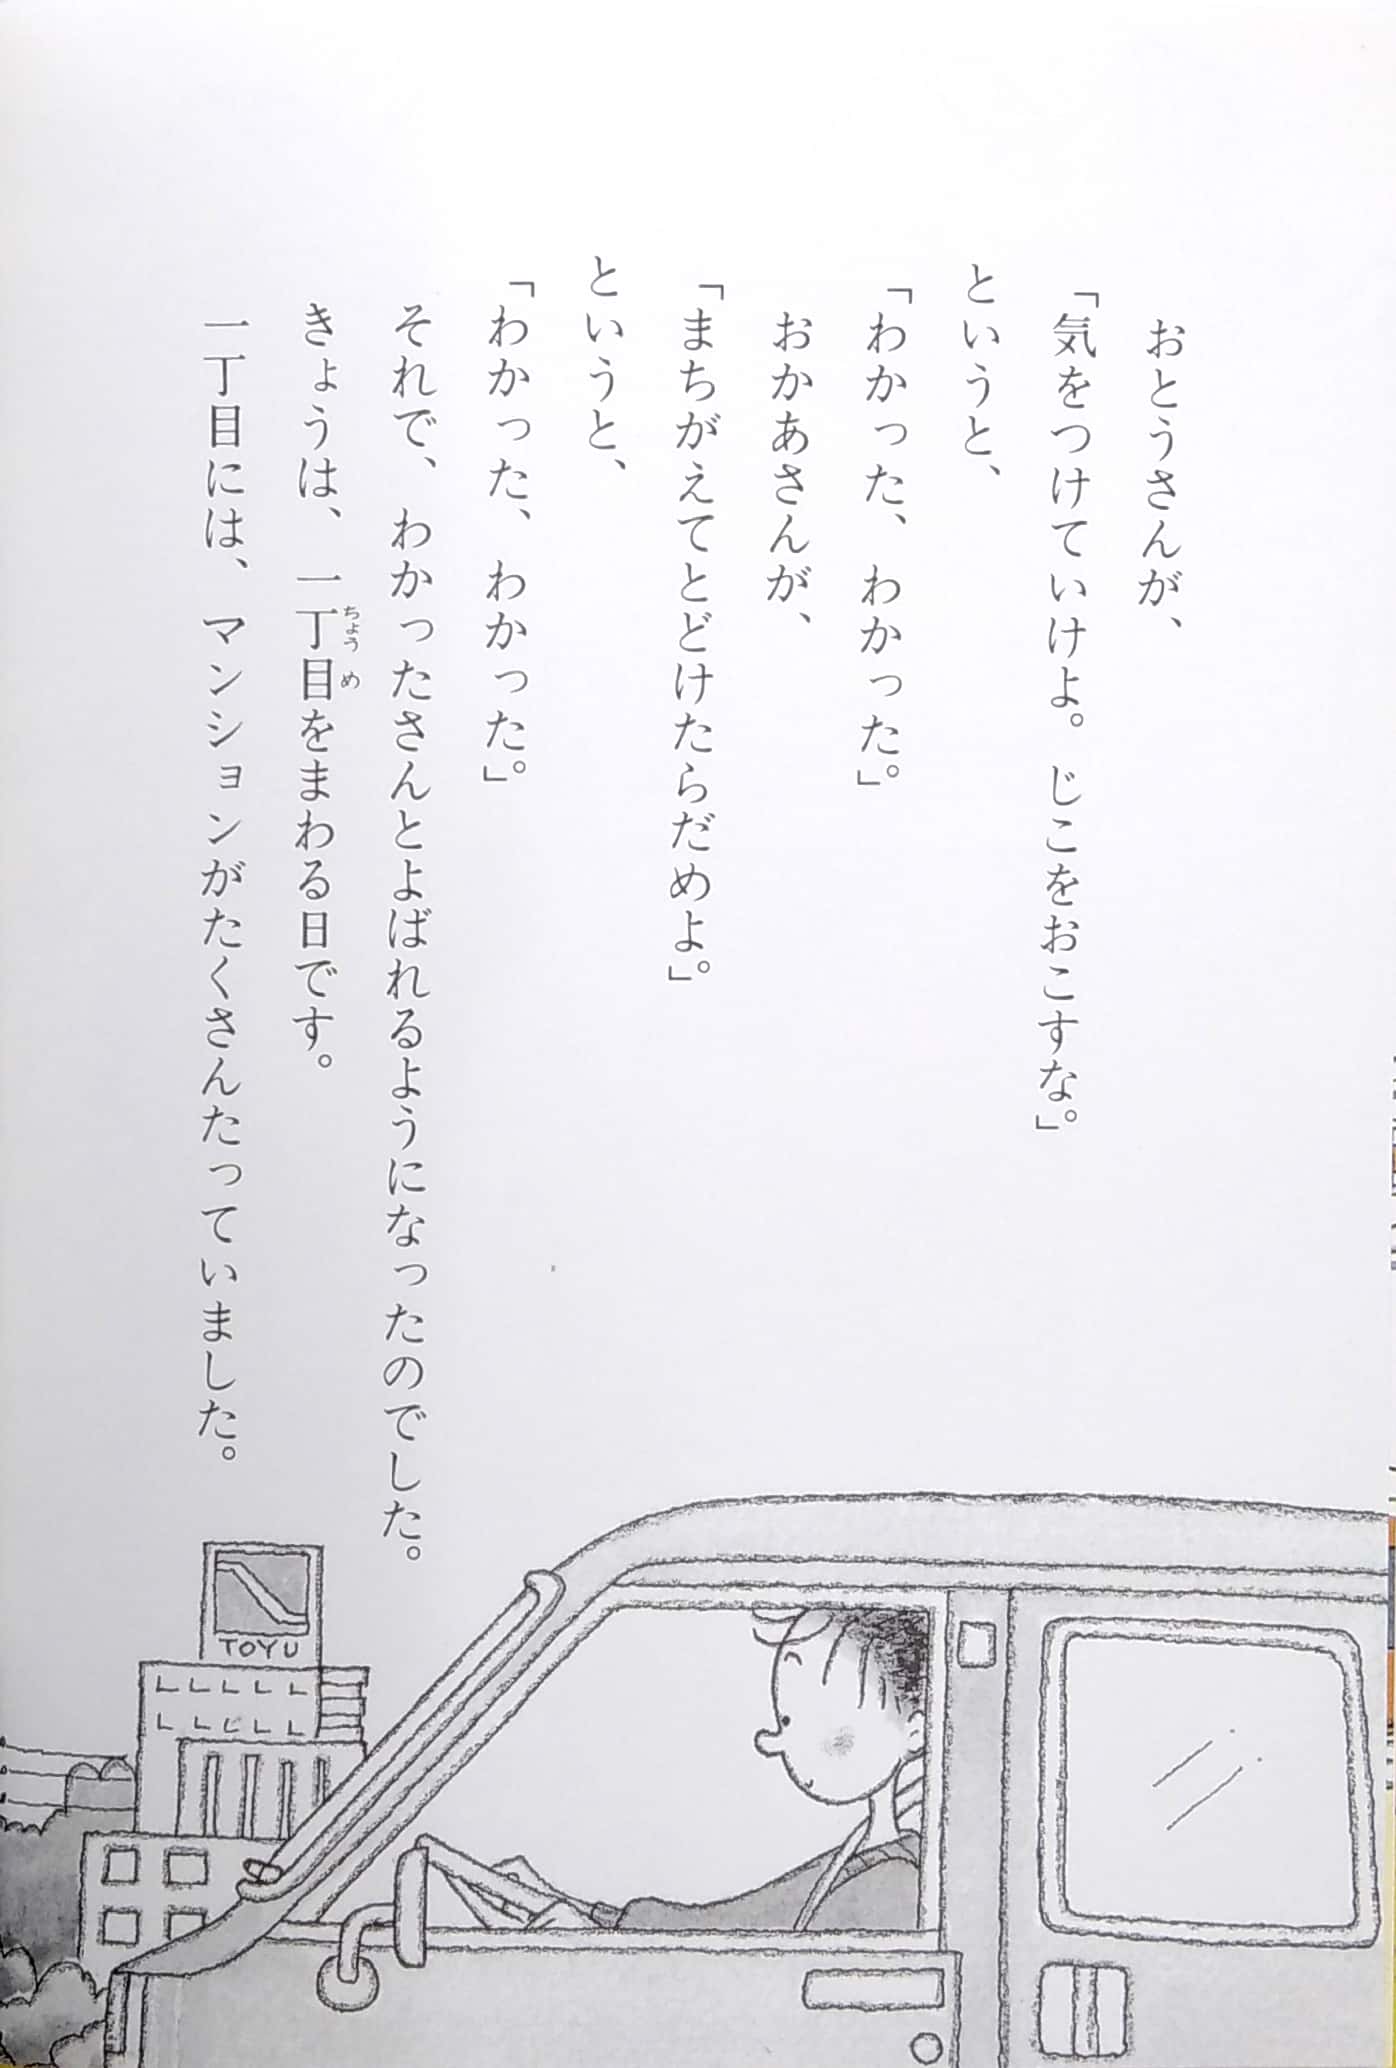 おとうさんが、
「気をつけていけよ。じこをおこすな。」
というと、
「わかった、わかった。」
おかあさんが、
「まちがえてとどけたらだめよ。」
というと、
「わかった、わかった。」
それで、わかったさんとよばれるようになったのでした。
きょうは、一丁目をまわる日です。
ちょうめ
一丁目には、マンションがたくさんたっていました。
TOYU